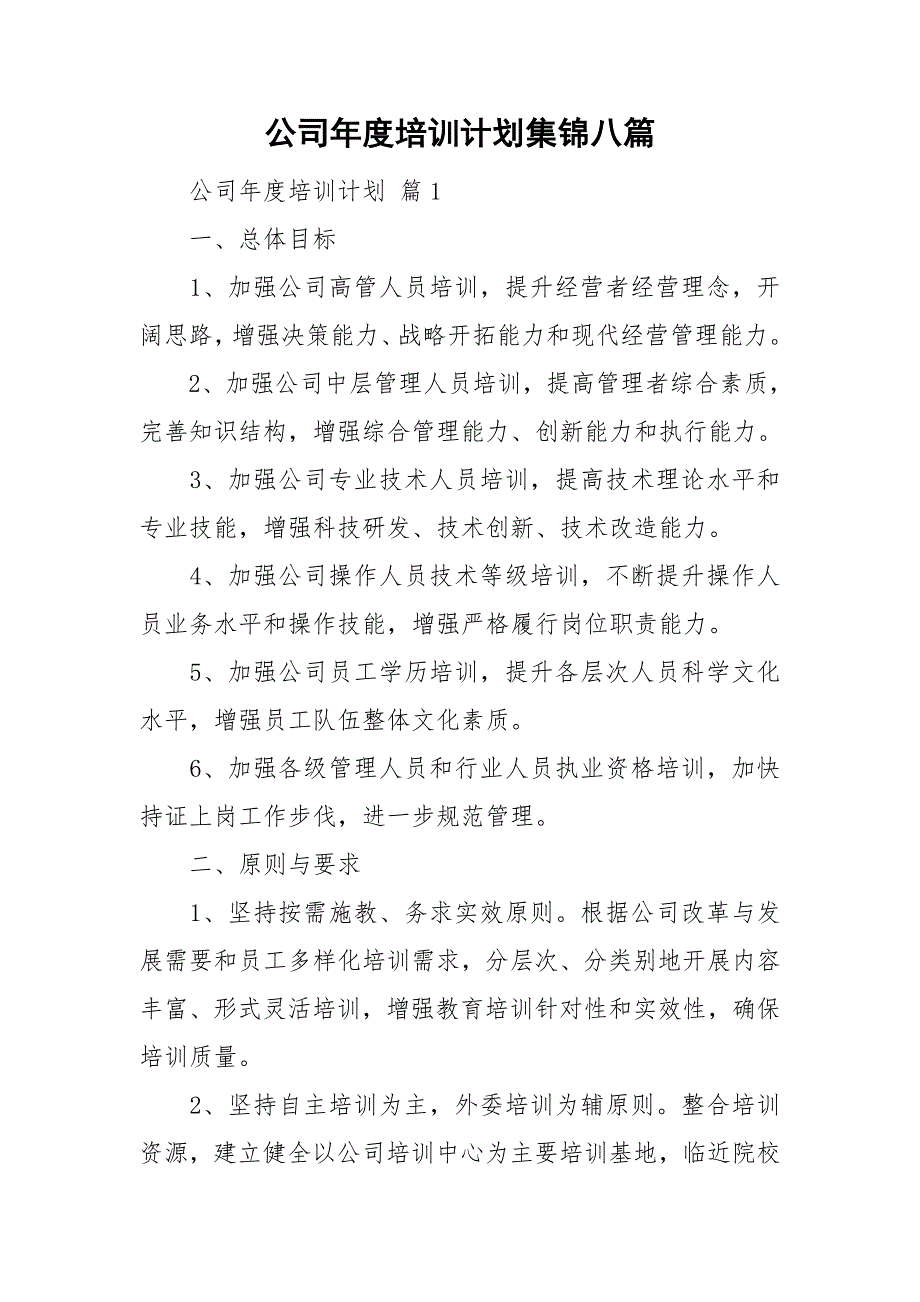 公司年度培训计划集锦八篇
公司年度培训计划 篇1
一、总体目标
1、加强公司高管人员培训，提升经营者经营理念，开
阔思路，增强决策能力、战略开拓能力和现代经营管理能力。
2、加强公司中层管理人员培训，提高管理者综合素质，
完善知识结构，增强综合管理能力、创新能力和执行能力。
3、加强公司专业技术人员培训，提高技术理论水平和
专业技能，增强科技研发、技术创新、技术改造能力。
4、加强公司操作人员技术等级培训，不断提升操作人
员业务水平和操作技能，增强严格履行岗位职责能力。
5、加强公司员工学历培训，提升各层次人员科学文化
水平，增强员工队伍整体文化素质。
6、加强各级管理人员和行业人员执业资格培训，加快
持证上岗工作步伐，进一步规范管理。
二、原则与要求
1、坚持按需施教、务求实效原则。根据公司改革与发
展需要和员工多样化培训需求，分层次、分类别地开展内容
丰富、形式灵活培训，增强教育培训针对性和实效性，确保
培训质量。
2、坚持自主培训为主，外委培训为辅原则。整合培训
资源，建立健全以公司培训中心为主要培训基地，临近院校